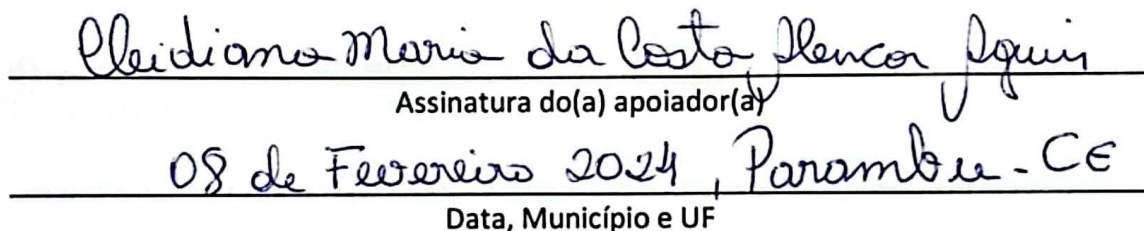 Cleidiana Maria da Costa Alencar Aquin
Assinatura do(a) apoiador(a)
08 de Fevereiro 2024, Parambu - CE
Data, Município e UF